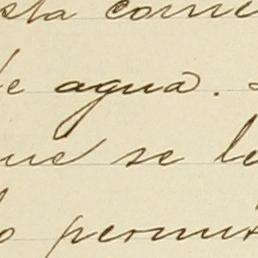 sta corrie
de agua.
que se le
lo permi